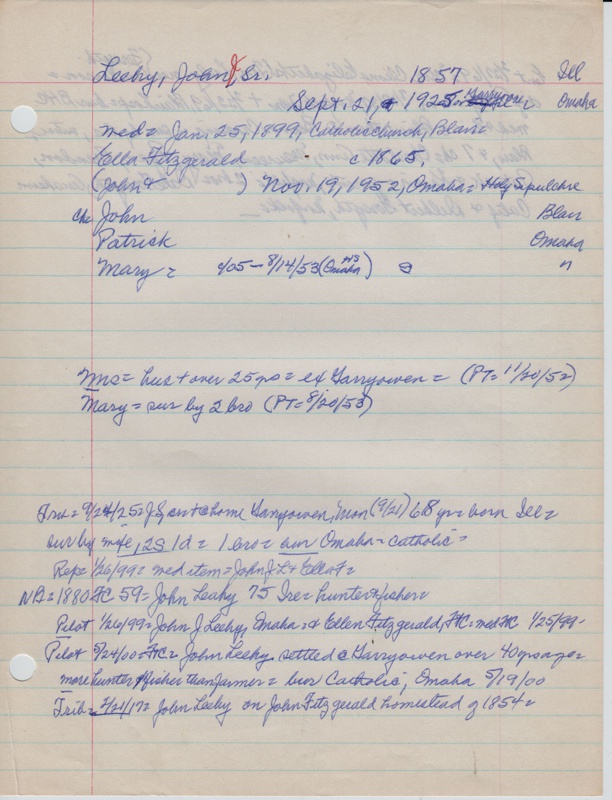 Leehy, John J, Sr. 1857 Ill
Sept. 21, + 1925 Garryowen Omaha
med = Jan. 25, 1899, Catholic church, Blair
Ella Fitzgerald c 1865,
(John + ) Nov. 19, 1952, Omaha = Holy Sepulchre
Ch John Blair
Patrick Omaha
Mary = 1905 - 8/14/53 (Omaha NS) "
Mrs = hus + over 25 ys = ex Garryowen = (PT = 11/20/52)
Mary = sur by 2 bro (PT = 8/20/53)
9/24/25 = J L, home Garryowen, Mon (9/21) 68 yr = born Ill =
sur by wife, 2S 1d = 1 bro = bur Omaha = Catholic =
Rep = 1/26/99 = med item = John J L + Ella F =
NB = 1880 FC 59 = John Leehy 75 Ire = hunter + fisher =
Pilot 1/26/99 = John J Leehy, Omaha = + Ellen Fitzgerald, FC = med WC 1/25/99 =
Pilot 5/24/00 = FC = John Leehy settled @ Garryowen over 40 ys ago =
more hunter + fisher than farmer = bur Catholic, Omaha 5/19/00
Trib = 2/21/17 = John Leehy on John Fitzgerald homestead of 1854 =